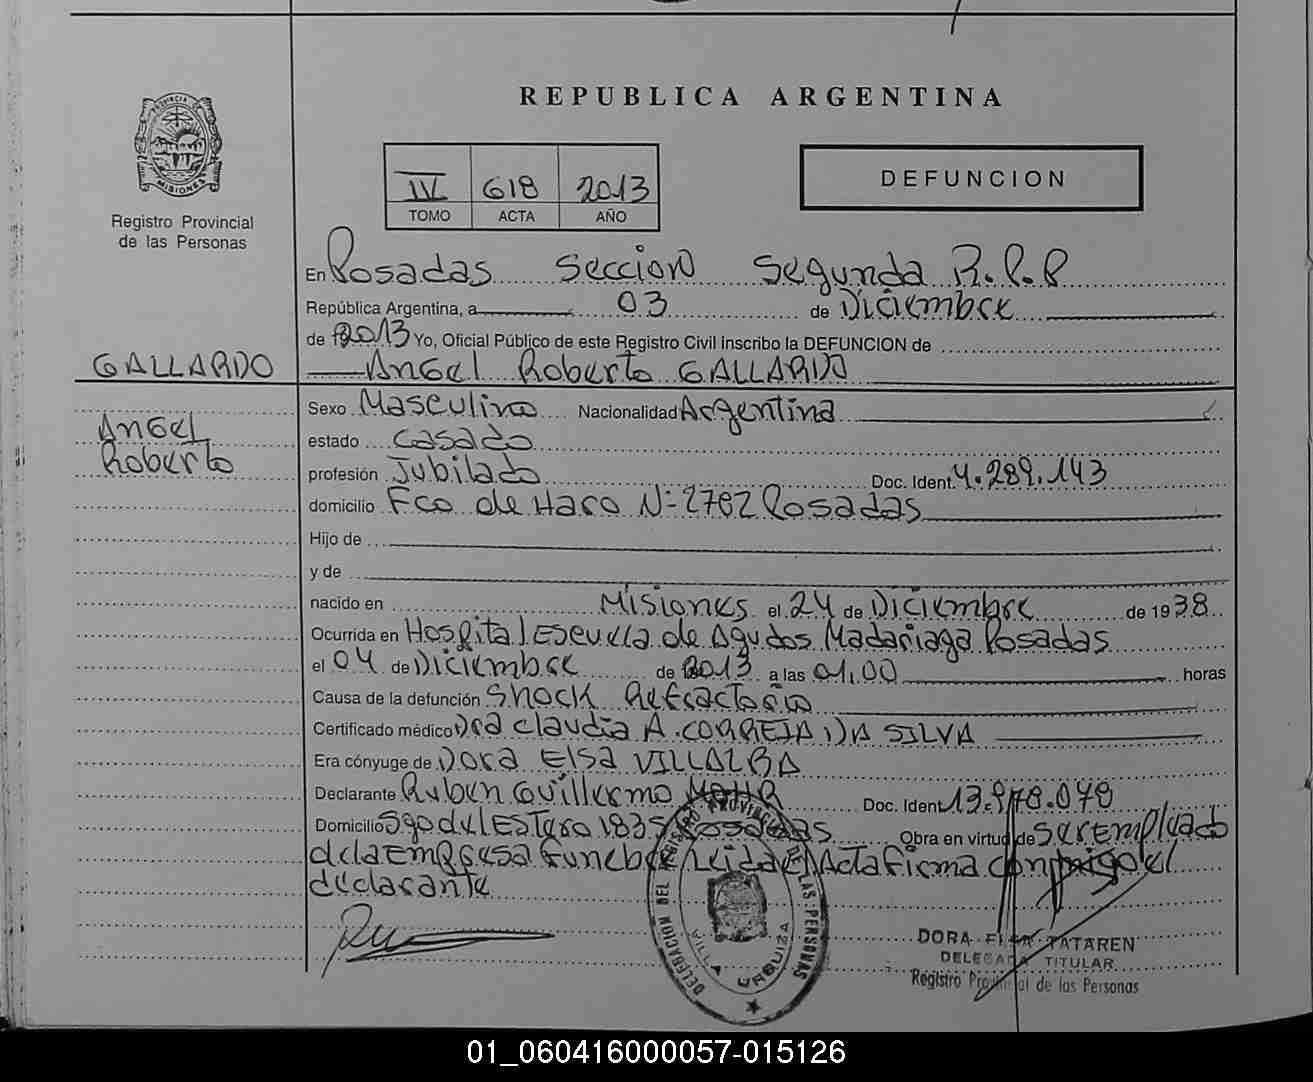 REPUBLICA ARGENTINA
PROVINCIA DE MISIONES
Registro Provincial
de las Personas
IV 618 2013
TOMO ACTA AÑO
DEFUNCION
En Posadas Seccion Segunda R.P.P
República Argentina, a 03 de Diciembre
de 2013 Yo, Oficial Público de este Registro Civil inscribo la DEFUNCION de
GALLARDO
Angel Roberto GALLARDO
Angel
Roberto
Sexo Masculino Nacionalidad Argentina
estado Casado
profesión Jubilado Doc. Ident. 4.289.143
domicilio Fco de Haro N= 2762 Posadas
Hijo de
y de
nacido en Misiones el 24 de Diciembre de 1938
Ocurrida en Hospital Escuela de Agudos Madariaga Posadas
el 04 de Diciembre de 2013 a las 01.00 horas
Causa de la defunción Shock Refractario
Certificado médico Dra Claudia A. CORREIA DA SILVA
Era cónyuge de Dora Elsa VILLALBA
Declarante Ruben Guillermo Doc. Ident. 13.978.079
Domicilio Sgo del Estero 1835 Posadas Obra en virtud de ser Empleado
de la Empresa Funebre Leida el Acta firma conmigo el
declarante
DELEGACION DEL REGISTRO PROVINCIAL DE LAS PERSONAS
VILLA URQUIZA
DORA ELSA TATAREN
DELEGADA TITULAR
Registro Provincial de las Personas
01_060416000057-015126